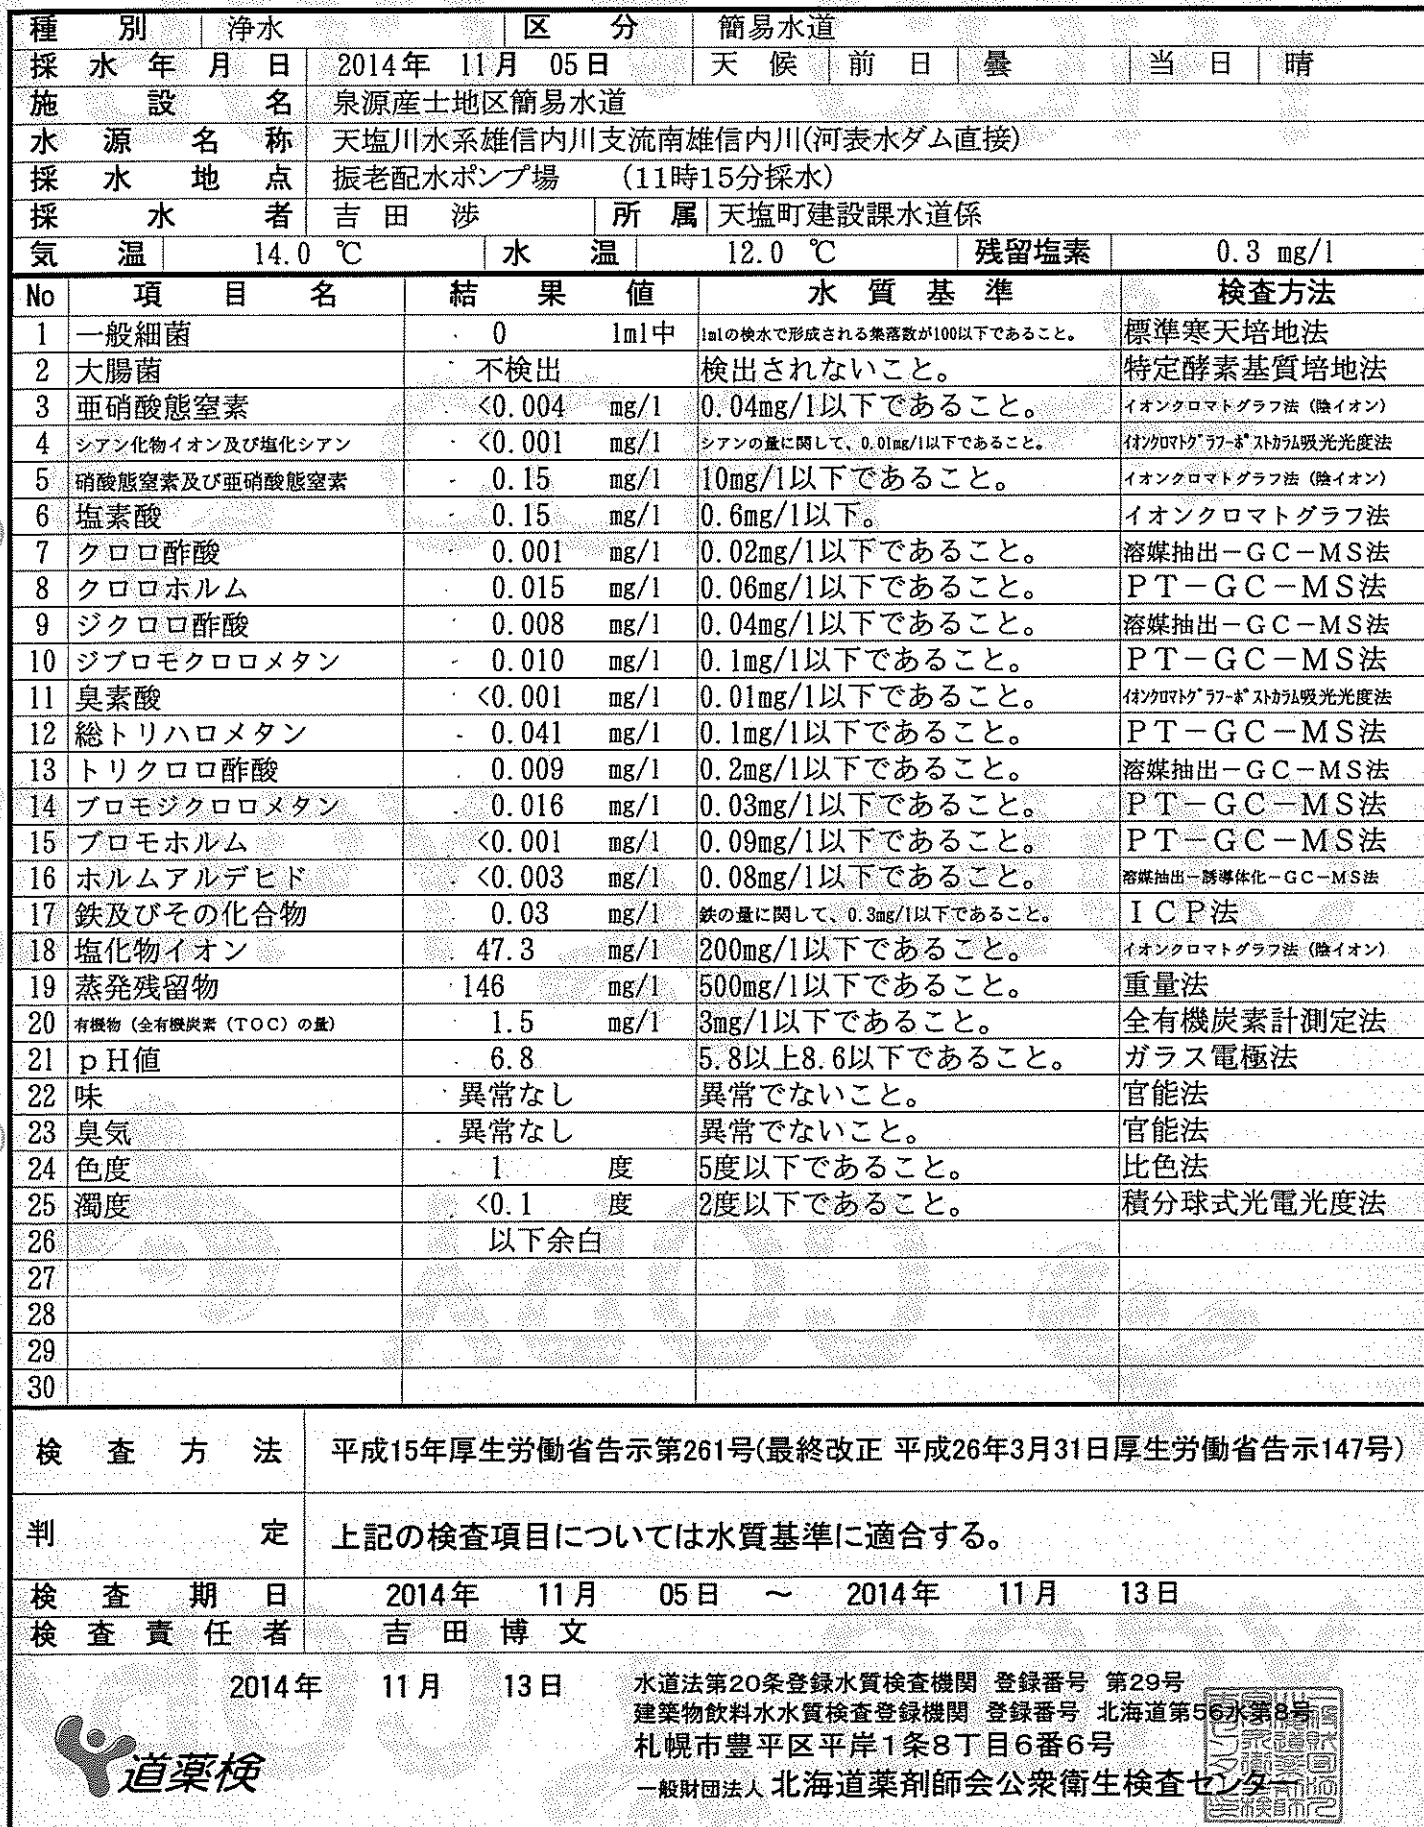 種別 浄水 区分 簡易水道
採水年月日 2014年 11月 05日 天候 前日 曇 当日 晴
施設名 泉源産士地区簡易水道
水源名称 天塩川水系雄信内川支流南雄信内川(河表水ダム直接)
採水地点 振老配水ポンプ場 (11時15分採水)
採水者 吉田 渉 所属 天塩町建設課水道係
気温 14.0 ℃ 水温 12.0 ℃ 残留塩素 0.3 mg/l
No 項目名 結果値 水質基準 検査方法
1 一般細菌 0 1ml中 1mlの検水で形成される集落数が100以下であること。 標準寒天培地法
2 大腸菌 不検出 検出されないこと。 特定酵素基質培地法
3 亜硝酸態窒素 <0.004 mg/l 0.04mg/l以下であること。 イオンクロマトグラフ法(陰イオン)
4 シアン化物イオン及び塩化シアン <0.001 mg/l シアンの量に関して、0.01mg/l以下であること。 イオンクロマトグラフ-ポストカラム吸光光度法
5 硝酸態窒素及び亜硝酸態窒素 0.15 mg/l 10mg/l以下であること。 イオンクロマトグラフ法(陰イオン)
6 塩素酸 0.15 mg/l 0.6mg/l以下。 イオンクロマトグラフ法
7 クロロ酢酸 0.001 mg/l 0.02mg/l以下であること。 溶媒抽出-GC-MS法
8 クロロホルム 0.015 mg/l 0.06mg/l以下であること。 PT-GC-MS法
9 ジクロロ酢酸 0.008 mg/l 0.04mg/l以下であること。 溶媒抽出-GC-MS法
10 ジブロモクロロメタン 0.010 mg/l 0.1mg/l以下であること。 PT-GC-MS法
11 臭素酸 <0.001 mg/l 0.01mg/l以下であること。 イオンクロマトグラフ-ポストカラム吸光光度法
12 総トリハロメタン 0.041 mg/l 0.1mg/l以下であること。 PT-GC-MS法
13 トリクロロ酢酸 0.009 mg/l 0.2mg/l以下であること。 溶媒抽出-GC-MS法
14 ブロモジクロロメタン 0.016 mg/l 0.03mg/l以下であること。 PT-GC-MS法
15 ブロモホルム <0.001 mg/l 0.09mg/l以下であること。 PT-GC-MS法
16 ホルムアルデヒド <0.003 mg/l 0.08mg/l以下であること。 溶媒抽出-誘導体化-GC-MS法
17 鉄及びその化合物 0.03 mg/l 鉄の量に関して、0.3mg/l以下であること。 ICP法
18 塩化物イオン 47.3 mg/l 200mg/l以下であること。 イオンクロマトグラフ法(陰イオン)
19 蒸発残留物 146 mg/l 500mg/l以下であること。 重量法
20 有機物(全有機炭素(TOC)の量) 1.5 mg/l 3mg/l以下であること。 全有機炭素計測定法
21 pH値 6.8 5.8以上8.6以下であること。 ガラス電極法
22 味 異常なし 異常でないこと。 官能法
23 臭気 異常なし 異常でないこと。 官能法
24 色度 1 度 5度以下であること。 比色法
25 濁度 <0.1 度 2度以下であること。 積分球式光電光度法
26 以下余白
27
28
29
30
検査方法 平成15年厚生労働省告示第261号(最終改正 平成26年3月31日厚生労働省告示147号)
判定 上記の検査項目については水質基準に適合する。
検査期日 2014年 11月 05日 ～ 2014年 11月 13日
検査責任者 吉田博文
2014年 11月 13日
水道法第20条登録水質検査機関 登録番号 第29号
建築物飲料水水質検査登録機関 登録番号 北海道第56水第8号
札幌市豊平区平岸1条8丁目6番6号
一般財団法人 北海道薬剤師会公衆衛生検査センター
道薬検